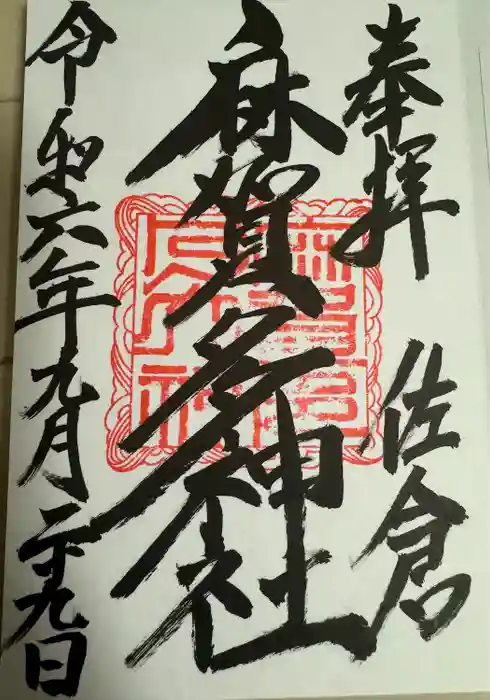 奉拝 佐倉
麻賀多神社
令和六年九月二十九日